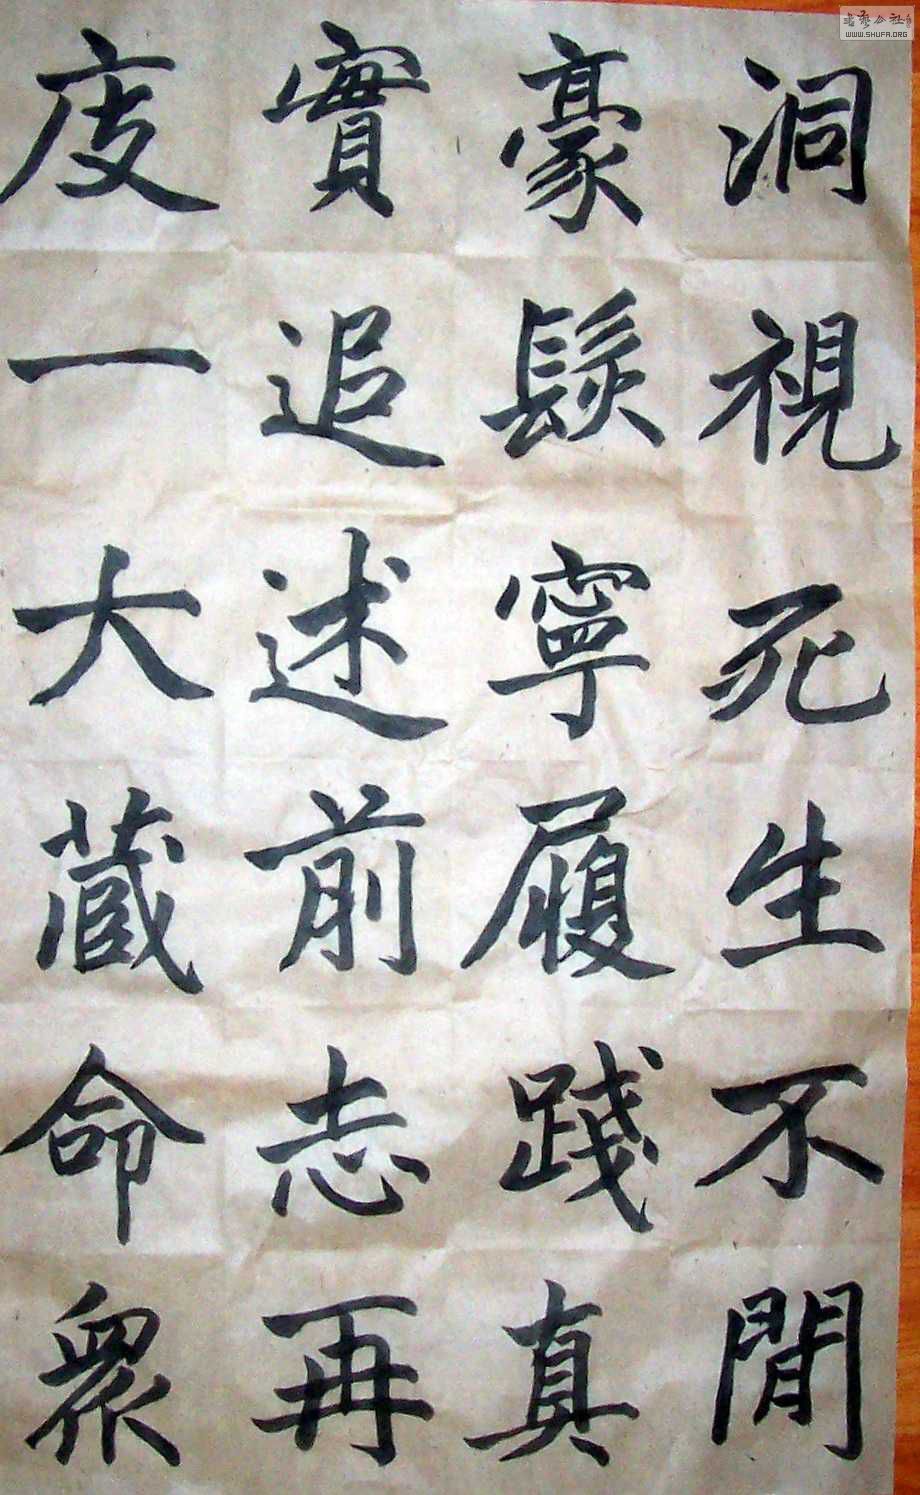 洞視死生不閒
豪髮寧履踐真
實追述前志再
度一大藏命衆
書藝公社
WWW.SHUFA.ORG